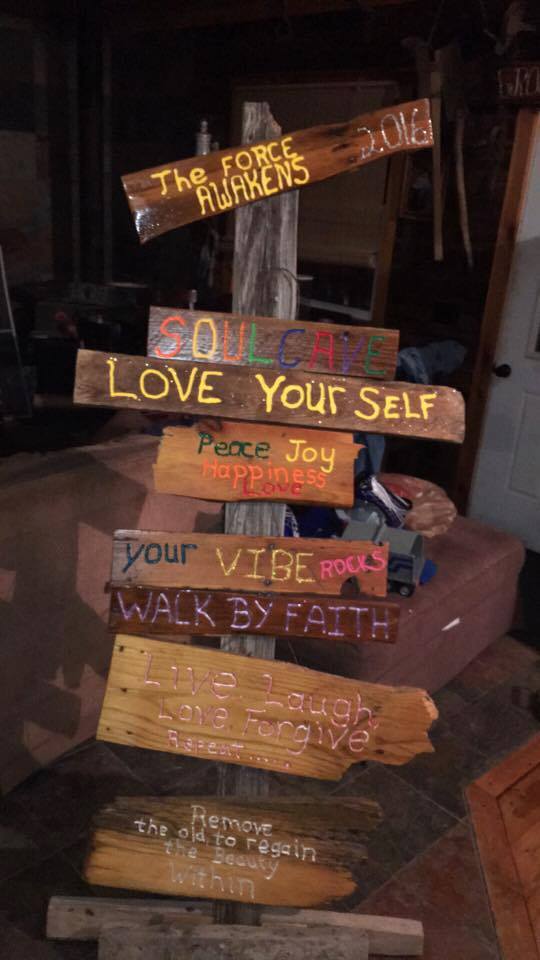 The FORCE
AWAKENS
2016
SOULCAVE
LOVE YOUr SELF
Peace Joy
Happiness
Love
your VIBE ROCKS
WALK BY FAITH
Live Laugh
Love Forgive
Repeat.....
Remove
the old to regain
the Beauty
Within